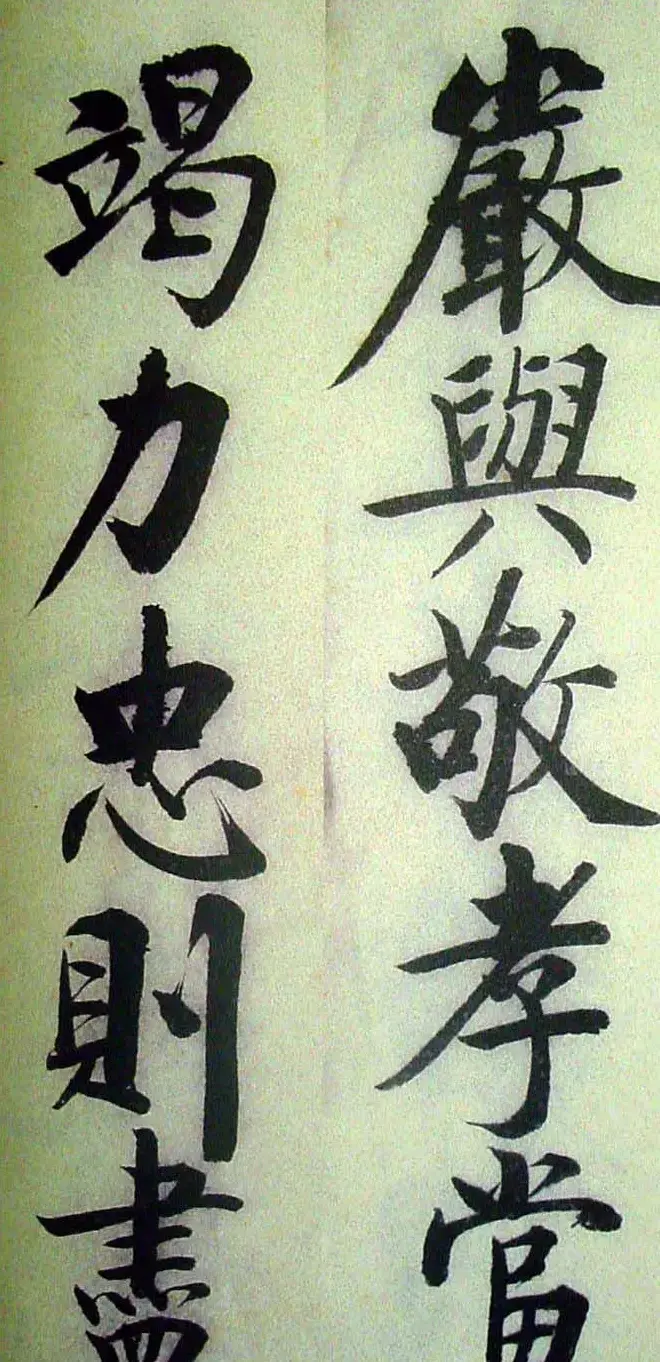 嚴與敬孝當
竭力忠則盡